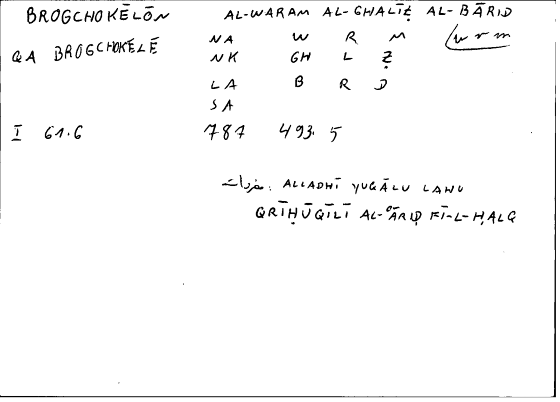 BROGCHOKĒLŌN AL-WARAM AL-GHALĪẒ AL-BĀRID
QA BROGCHOKĒLĒ NA W R M w r m
NK GH L Ẓ
LA B R D
SA
I 61.6 787 493. 5
مفردات: ALLADHĪ YUQĀLU LAHU
QRĪḤŪQĪLĪ AL-ʿĀRIḌ FĪ-L-ḤALQ